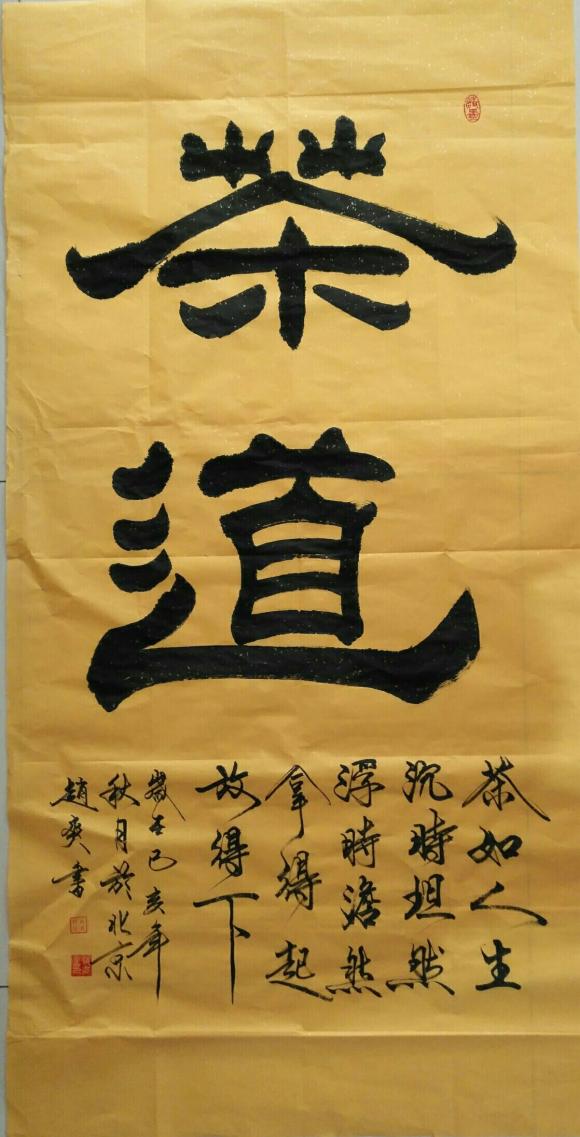 茶
道
茶如人生
沉時坦然
浮時澹然
拿得起
放得下
歲在己亥年
秋月於北京
趙爽書